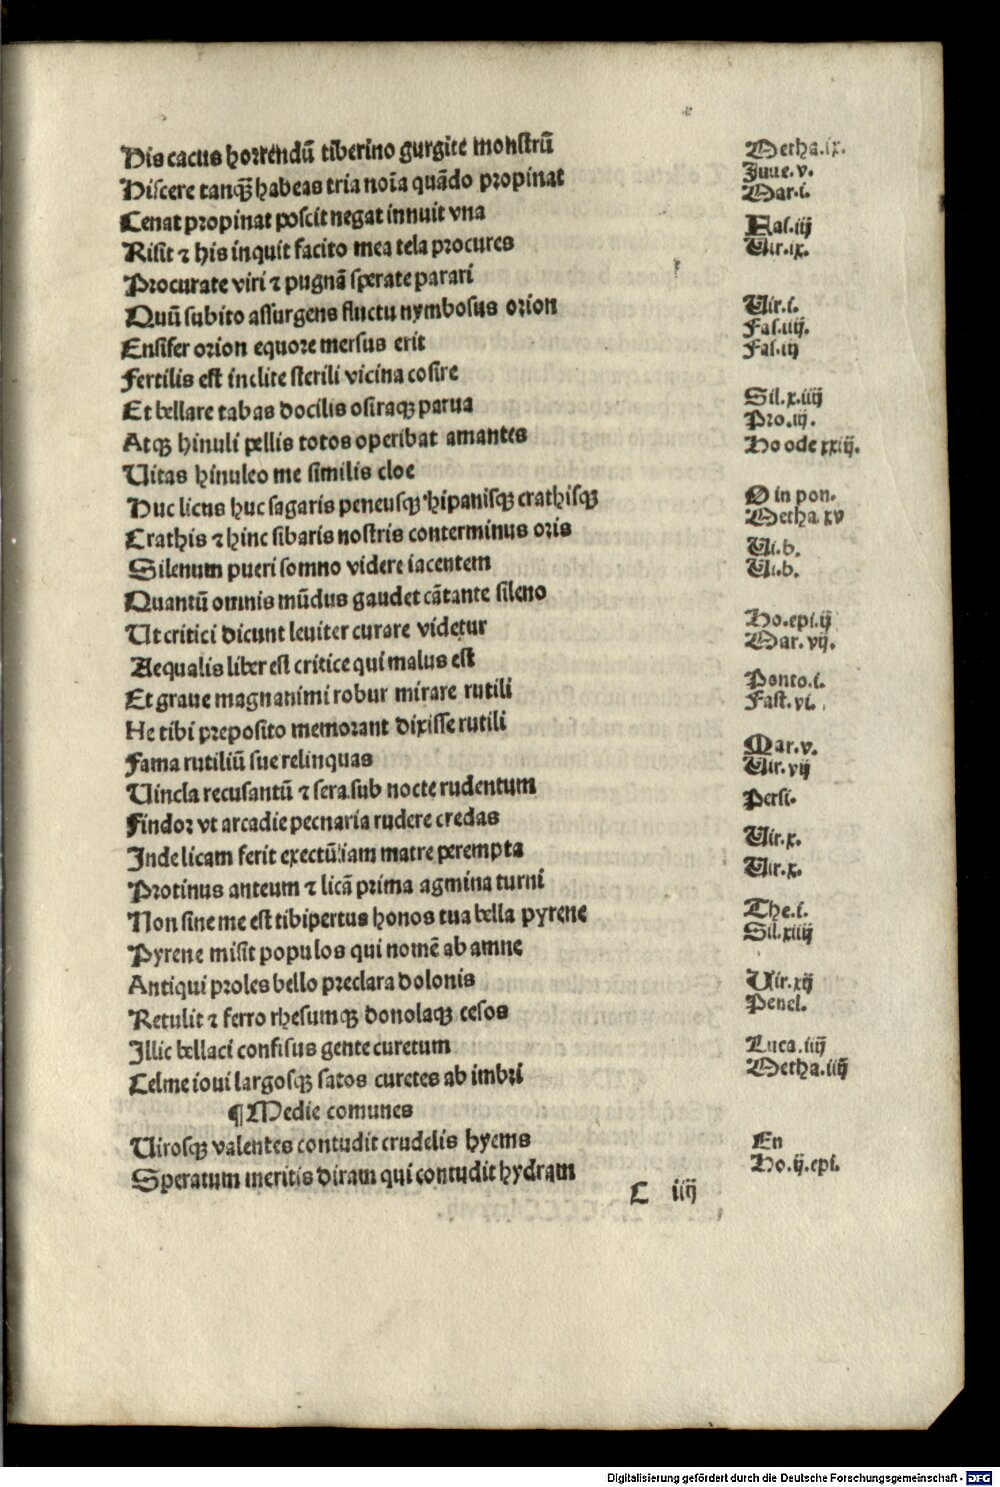 His cacus horrendū tiberino gurgite monstrū Metha.ix.
Hiscere tanq̄ habeas tria noīa quādo propinat Juue.v.
Cenat propinat poscit negat innuit vna Mar.i.
Risit ⁊ his inquit facito mea tela procures Fas.iij
Procurate viri ⁊ pugnā sperate parari Uir.ix.
Quū subito assurgens fluctu nymbosus orion Uir.i.
Ensifer orion equore mersus erit Fas.iiij.
Fertilis est inclite sterili vicina cosire Fas.iij
Et bellare tabas docilis osiraqꝫ parua Sil.x.iiij
Atqꝫ hinuli pellis totos operibat amantes Pro.iij.
Uitas hinuleo me similis cloe Ho ode xxiij.
Huc licus huc sagaris peneusqꝫ hipanisqꝫ crathisqꝫ O in pon.
Crathis ⁊ hinc sibaris nostris conterminus oris Metha xv
Silenum pueri somno videre iacentem Ui.b.
Quantū omnis mūdus gaudet cātante sileno Ui.b.
Ut critici dicunt leuiter curare videtur Ho.epi.ij
Aequalis liber est critice qui malus est Mar.vij.
Et graue magnanimi robur mirare rutili Ponto.i.
He tibi preposito memorant dixisse rutili Fast.vi.
Fama rutiliū sue relinquas Mar.v.
Uincla recusantū ⁊ sera sub nocte rudentum Uir.vij
Findor vt arcadie pecnaria rudere credas Persi.
Inde licam ferit exectū iam matre perempta Uir.x.
Protinus anteum ⁊ licā prima agmina turni Uir.x.
Non sine me est tibi pertus honos tua bella pyrene The.i.
Pyrene misit populos qui nomē ab amne Sil.xiiij
Antiqui proles bello preclara dolonis Uir.xij
Retulit ⁊ ferro rhesumqꝫ donolaqꝫ cesos Penel.
Illic bellaci confisus gente curetum Luca.iiij
Celme ioui largosqꝫ satos curetes ab imbri Metha.iiij
¶ Medie comunes
Uirosqꝫ valentes contudit crudelis hyems En
Speratum meritis diram qui contudit hydram Ho.ij.epi.
C iiij
Digitalisierung gefördert durch die Deutsche Forschungsgemeinschaft - DFG